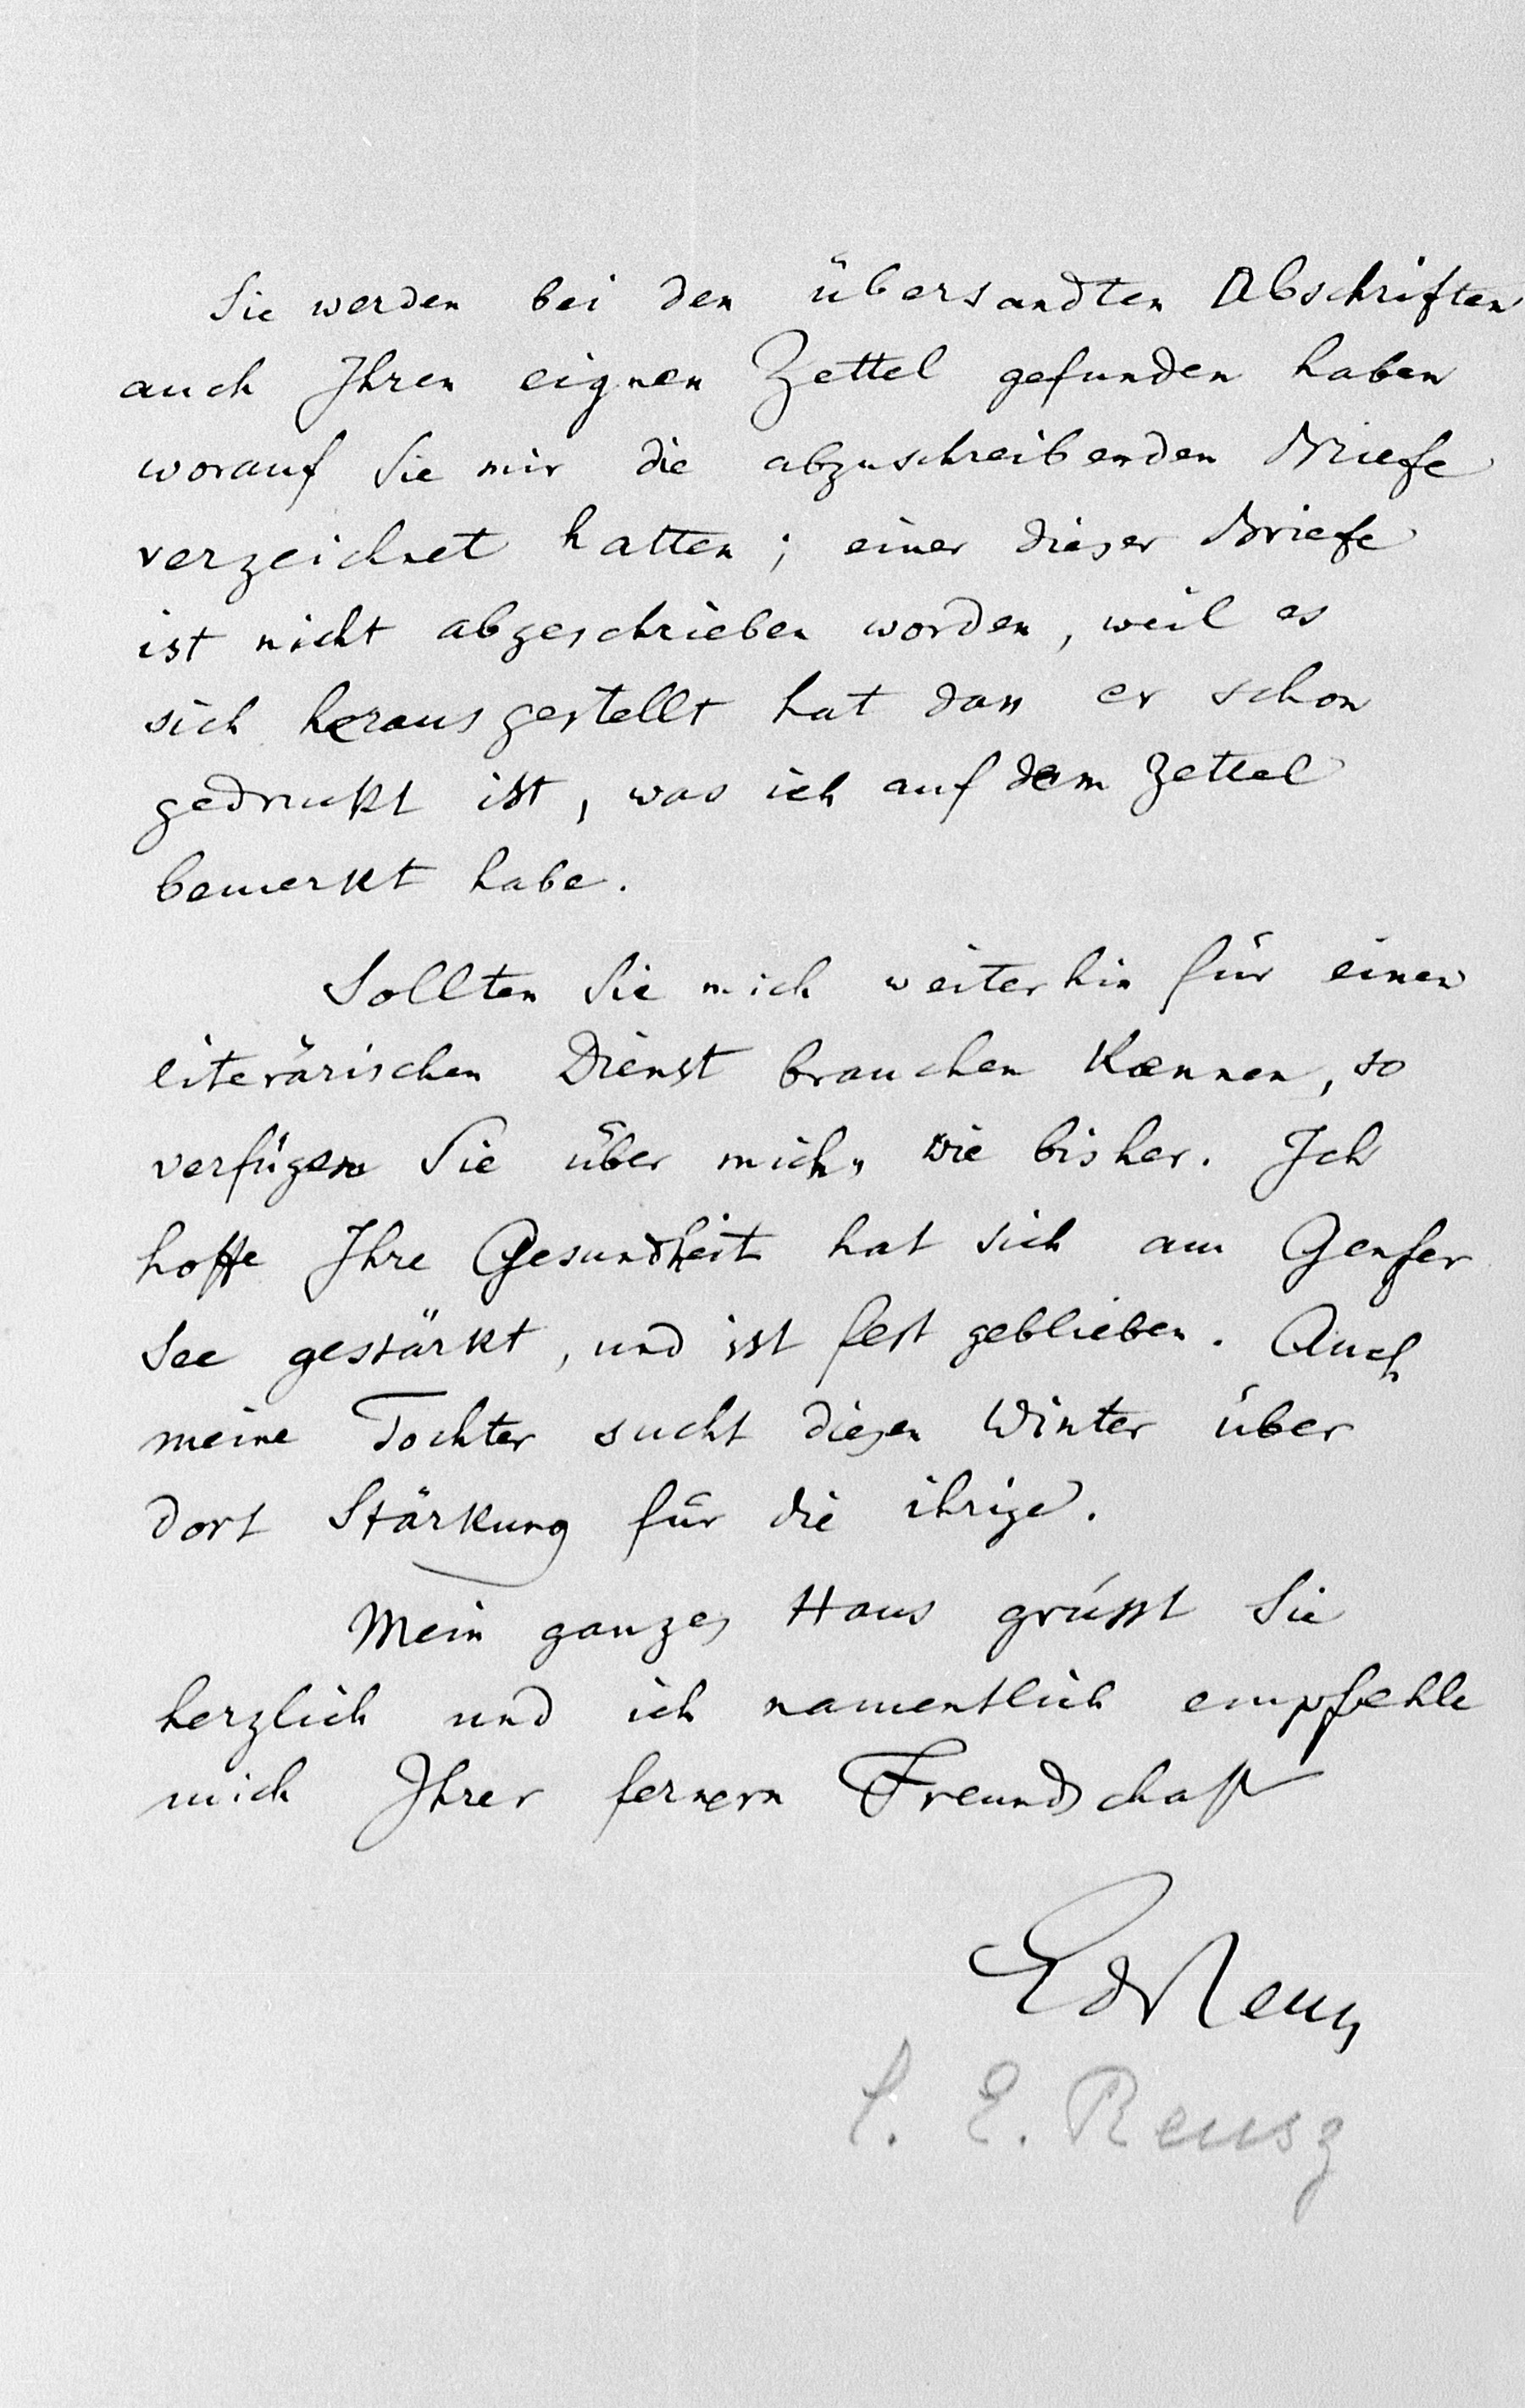 Sie werden bei den übersandten Abschriften
auch Ihren eignen Zettel gefunden haben
worauf Sie mir die abzuschreibenden Briefe
verzeichnet hatten; einer dieser Briefe
ist nicht abgeschrieben worden, weil es
sich herausgestellt hat dass er schon
gedruckt ist, was ich auf dem Zettel
bemerkt habe.
Sollten Sie mich weiterhin für einen
literärischen Dienst brauchen kœnnen, so
verfügen Sie über mich, wie bisher. Ich
hoffe Ihre Gesundheit hat sich am Genfer
See gestärkt, und ist fest geblieben. Auch
meine Tochter sucht diesen Winter über
dort Stärkung für die ihrige.
Mein ganzes Haus grüsst Sie
herzlich und ich namentlich empfehle
mich Ihrer fernern Freundschaft
EdReuss
E. Reusz